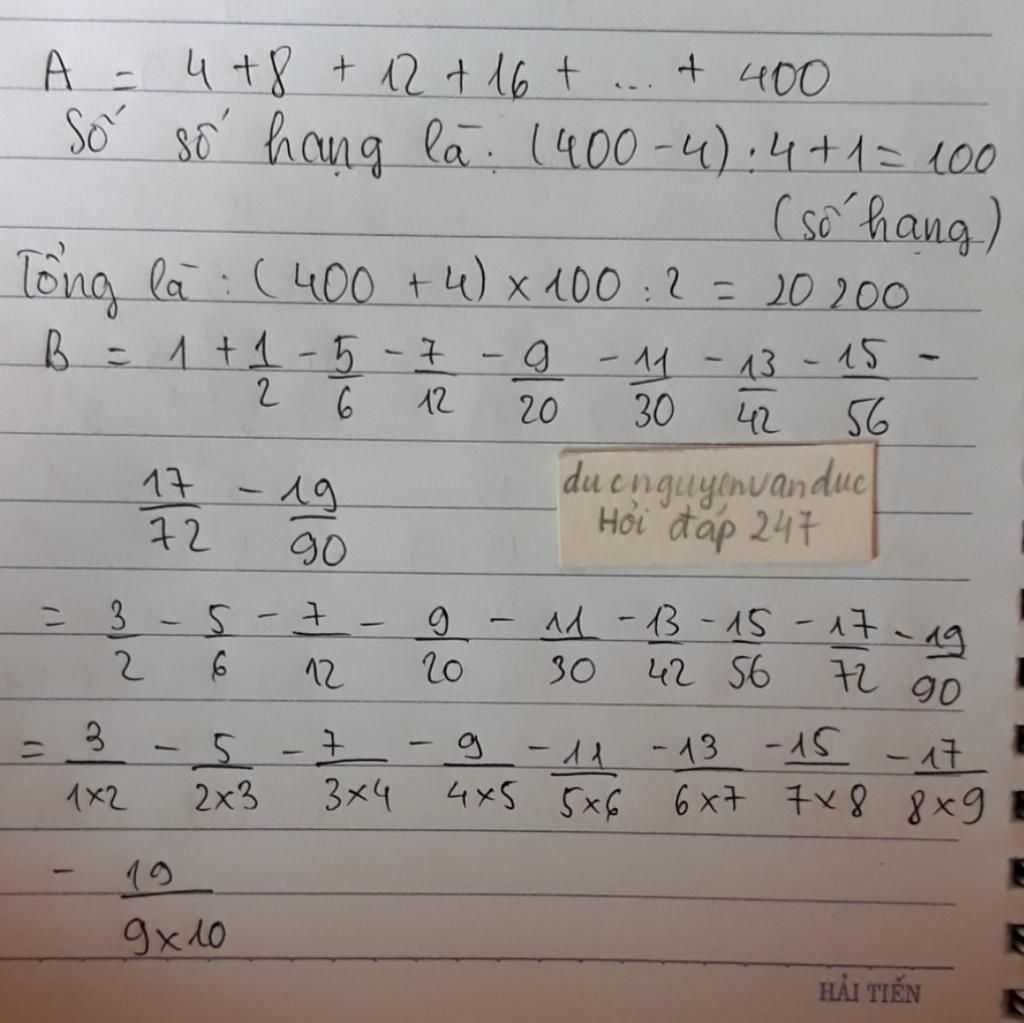 A = 4 + 8 + 12 + 16 + ... + 400
Số số hạng là : (400 - 4) : 4 + 1 = 100
(số hạng)
Tổng là : (400 + 4) × 100 : 2 = 20 200
B = 1 + 1/2 - 5/6 - 7/12 - 9/20 - 11/30 - 13/42 - 15/56 -
17/72 - 19/90
ducnguyenvanduc
Hỏi đáp 247
= 3/2 - 5/6 - 7/12 - 9/20 - 11/30 - 13/42 - 15/56 - 17/72 - 19/90
= 3/1×2 - 5/2×3 - 7/3×4 - 9/4×5 - 11/5×6 - 13/6×7 - 15/7×8 - 17/8×9
- 19/9×10
HẢI TIẾN